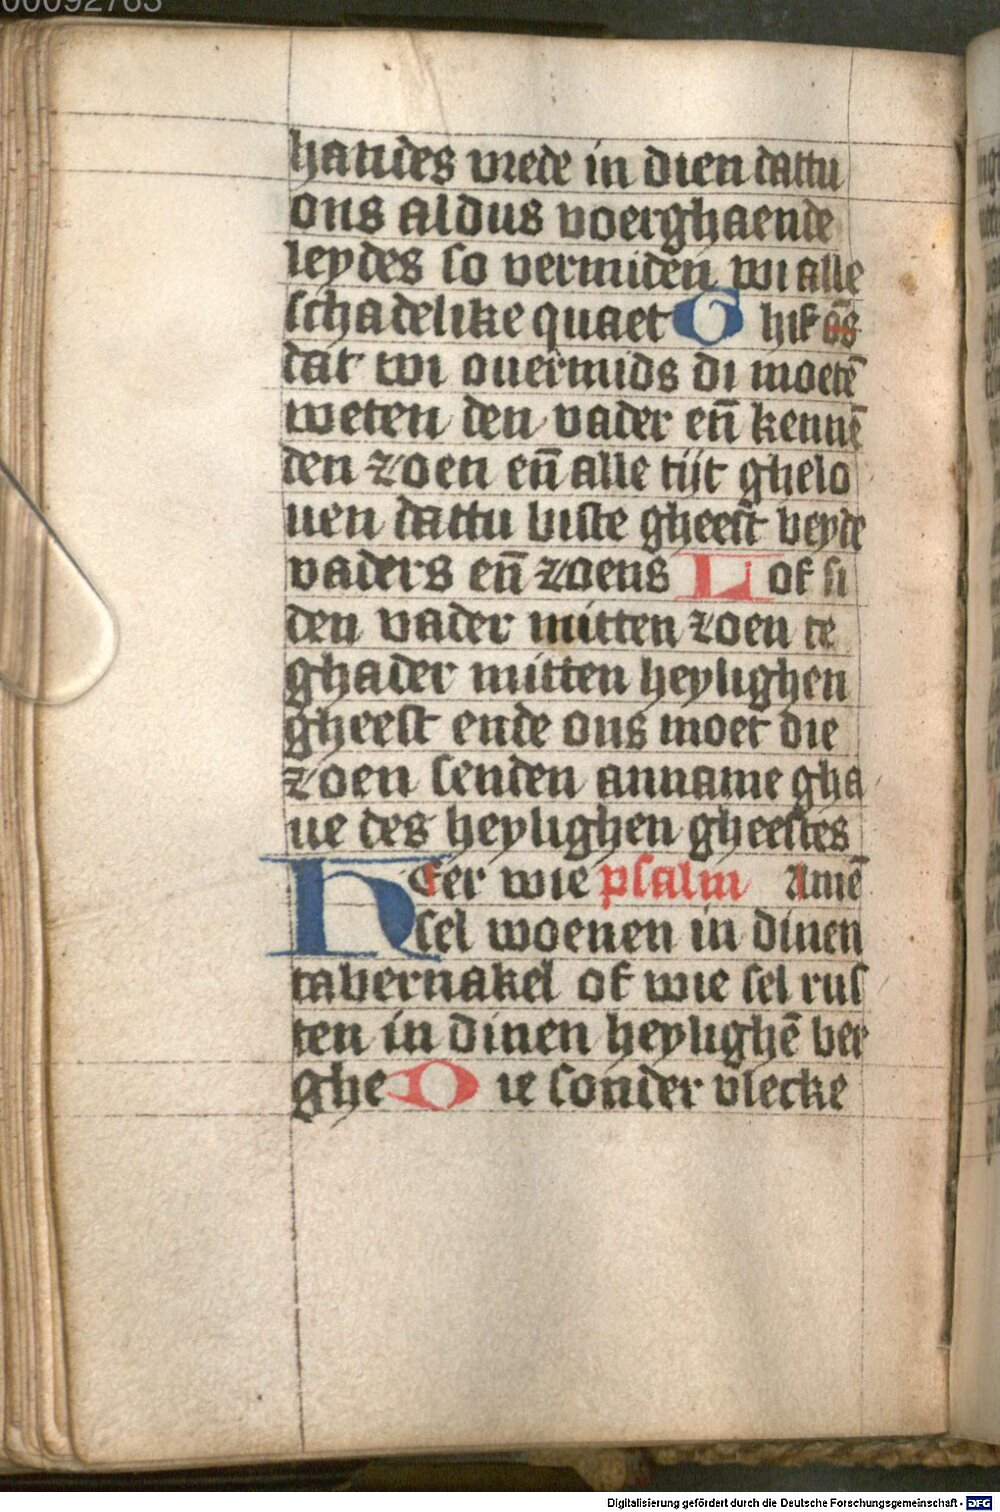 00092763
handes vrede in dien dattu
ons aldus voerghaende
leydes so vermiden wi alle
schadelike quaet Ghif ōs
dat wi ouermids di moetē
weten den vader en̄ kennē
den zoen en̄ alle tijt ghelo
uen dattu biste gheest beyde
vaders en̄ zoens Lof si
den vader mitten zoen te
ghader mitten heylighen
gheest ende ons moet die
zoen senden anname gha
ue des heylighen gheestes
Heer wie psalm Amē
sel woenen in dinen
tabernakel of wie sel rus
ten in dinen heylighē ber
ghe Die sonder vlecke
Digitalisierung gefördert durch die Deutsche Forschungsgemeinschaft - DFG